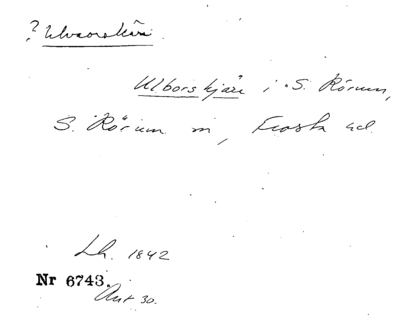 ? Ulvaorskäri
Ulborskjäri i S. Rörum,
S. Rörum sn, Frosta hd.
Lh. 1842
Nr 6743.
Akt 30.